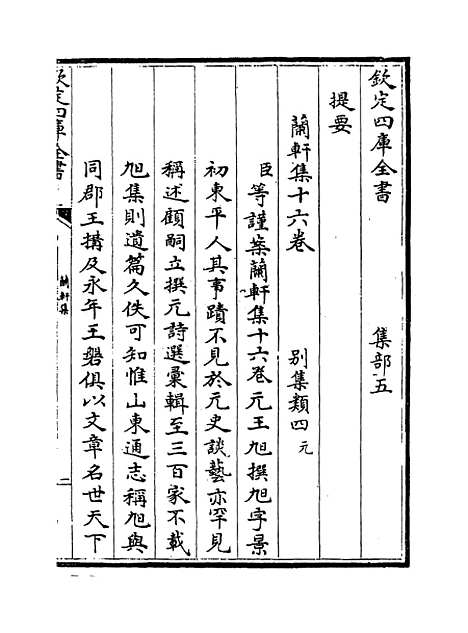 欽定四庫全書　集部五
提要
蘭軒集十六卷　別集類四元
臣等謹案蘭軒集十六卷元王旭撰旭字景
初東平人其事蹟不見於元史談藝亦罕見
稱述顧嗣立撰元詩選彙輯至三百家不載
旭集則遺篇久佚可知惟山東通志稱旭與
同郡王搆及永年王磐俱以文章名世天下
欽定四庫全書
蘭軒集
二